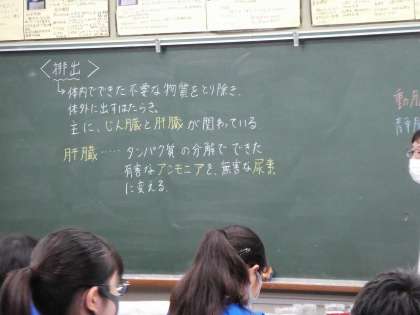 <排出>
↳体内でできた不要な物質をとり除き、
体外に出すはたらき。
主に、じん臓と肝臓が関わっている
肝臓‥‥‥タンパク質の分解でできた
有害なアンモニアを、無害な尿素
に変える。
動